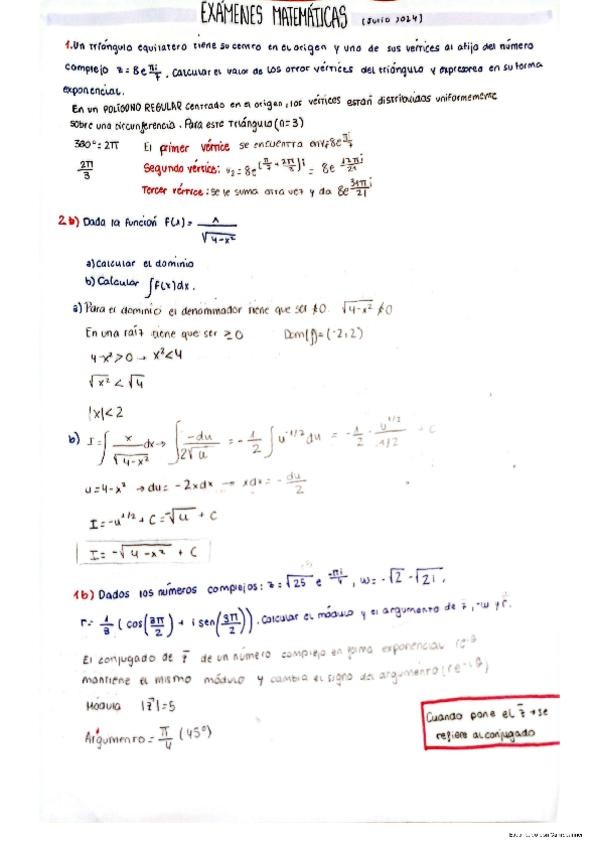 EXÁMENES MATEMÁTICAS (Julio 2024)
1. Un triángulo equilatero tiene su centro en el origen y uno de sus vértices al afijo del número
complejo z = 8e^(πi/7). Calcular el valor de los otros vértices del triángulo y expresarla en su forma
exponencial.
En un POLÍGONO REGULAR centrado en el origen, los vérticos estarñ distribuidos uniformemente
sobre una circunferencia. Para este triángulo (n=3)
360° = 2π El primer vértice se encuentra en
2π/3 Segundo vértice: v₂ = 8e^(π/7 + 2π/3)i = 8e^(17πi/21)
Tercer vértice: se le suma otra vez y da 8e^(31π/21 i)
2b) Dada la función F(x) = x/√(4-x²)
a) Calcular el dominio
b) Calcular ∫F(x)dx.
a) Para el dominio el denominador tiene que ser ≠0. √(4-x²) ≠0
En una raíz tiene que ser ≥0 Dom(f) = (-2,2)
4-x²>0 → x²<4
√x² < √4
|x|<2
b) I = ∫ x/√(4-x²) dx → ∫ -du/2√u = -1/2 ∫ u^(-1/2) du = -1/2 · u^(1/2)/1/2 + C
u=4-x² → du = -2xdx → xdx = -du/2
I = -u^(1/2) + C = -√u + C
I = -√(4-x²) + C
1b) Dados los números complejos: z = √25 e^(-πi/4), w = -√2 - √2i,
r = 1/3 (cos(3π/2) + i sen(3π/2)). Calcular el módulo y el argumento de z̄, -w y r̄.
El conjugado de z̄ de un número complejo en forma exponencial re^iθ
mantiene el mismo módulo y cambia el signo del argumento (re^-iθ)
Módulo |z̄| = 5
Argumento = π/4 (45°)
Cuando pone el z̄ → se
refiere al conjugado